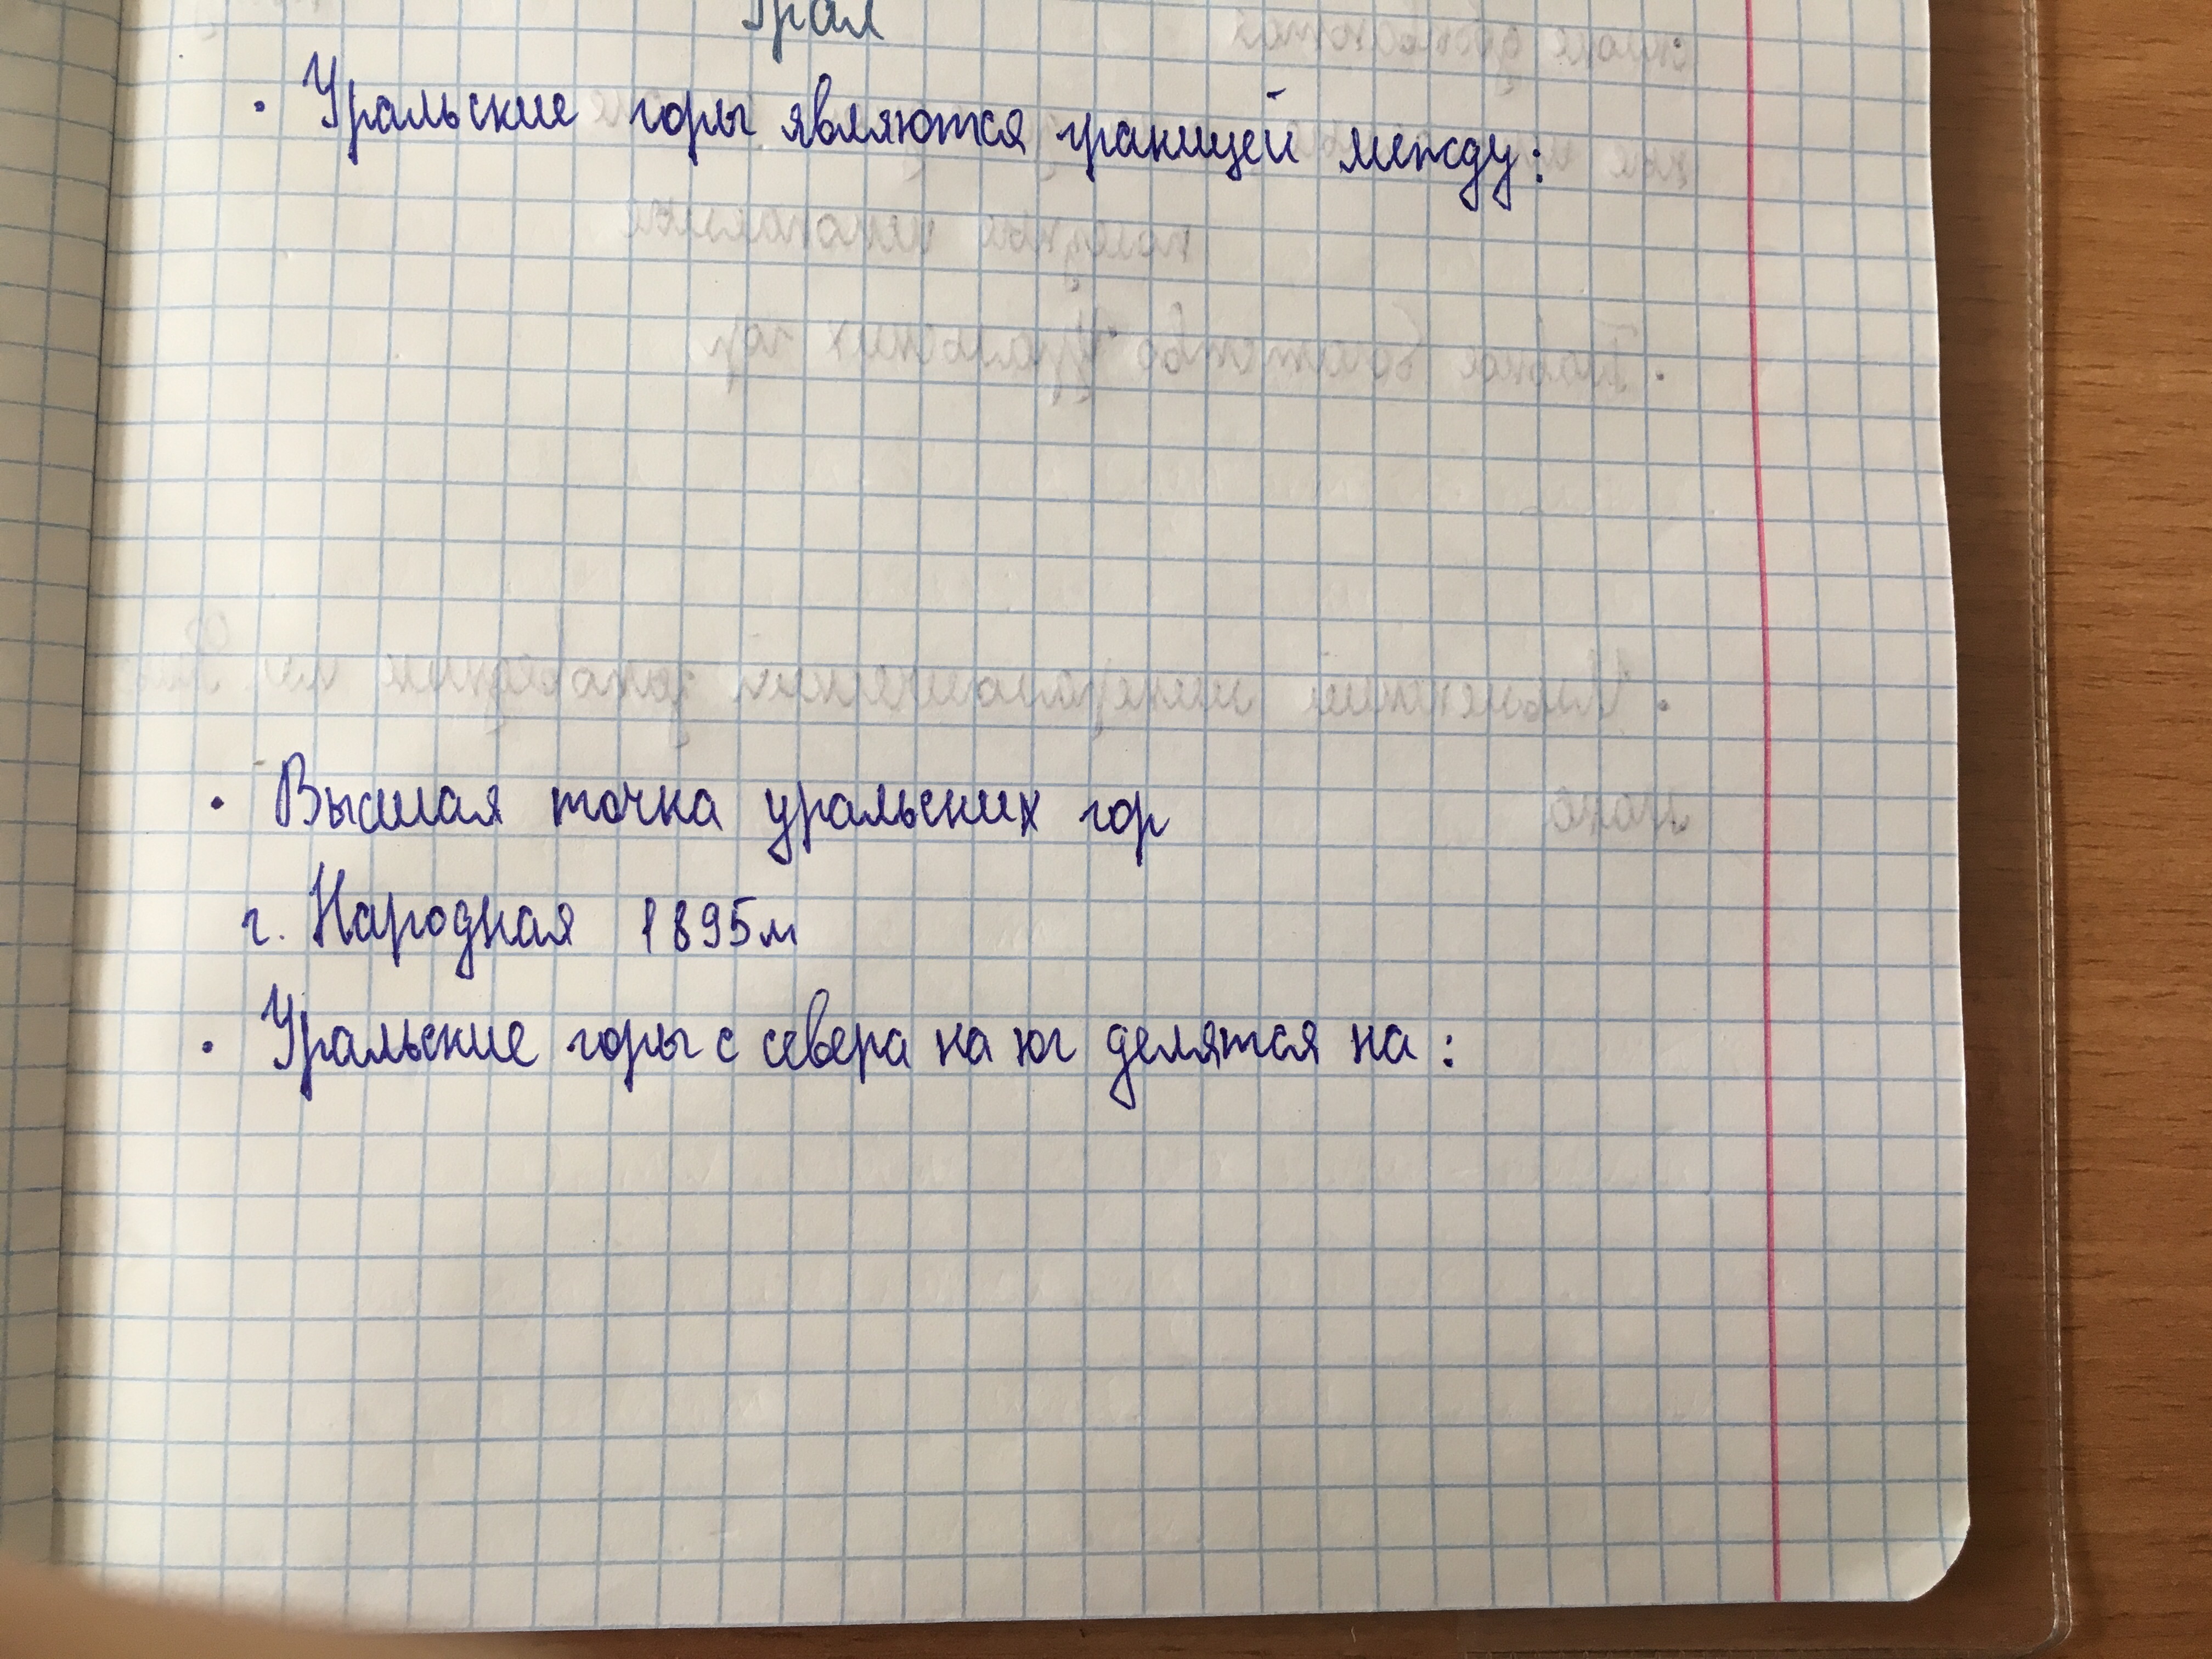 Урал
· Уральские горы являются границей между:
· Высшая точка уральских гор
г. Народная 1895м
· Уральские горы с севера на юг делятся на: